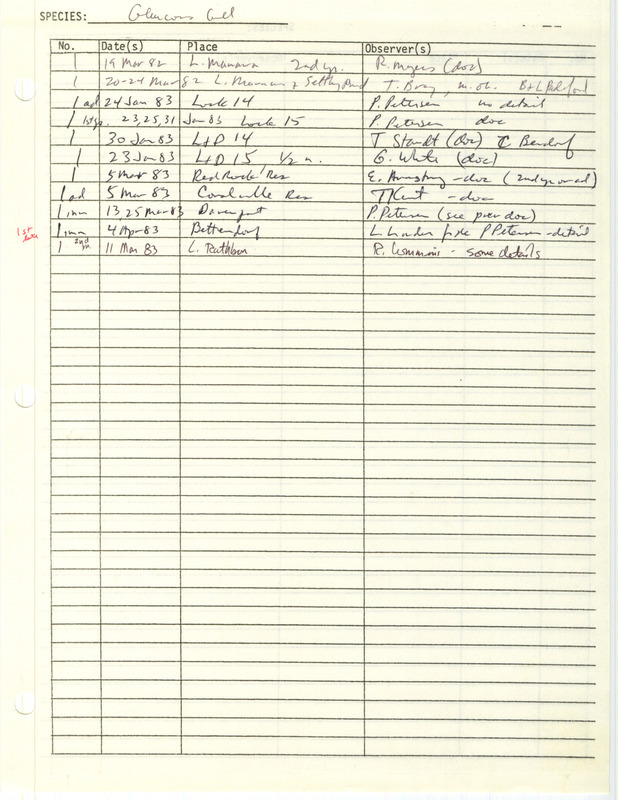 SPECIES: Glaucous Gull
No. Date(s) Place Observer(s)
1 19 Mar 82 L. Manawa 2nd yr. R. Myers (doc)
1 20-24 Mar 82 L. Manawa, Settling Pond T. Bray, m. ob. B+L Padelford
1 ad 24 Jan 83 Lock 14 P. Petersen no detail
1 1st yr. 23,25,31 Jan 83 Lock 15 P. Petersen doc
1 30 Jan 83 L+D 14 T Staudt (doc) C Bendorf
1 23 Jan 83 L+D 15, 1/2 m. G. White (doc)
1 5 Mar 83 Red Rock Res E. Armstrong - doc (2nd yr or ad)
1 ad 5 Mar 83 Coralville Res T Kent - doc
1 imm 13, 25 Mar 83 Davenport P. Petersen (see prev doc)
1st 1 imm 4 Apr 83 Bettendorf L Linder fide P Petersen - detail
1 2nd yr 11 Mar 83 L. Rathbun R. Cummins - some details